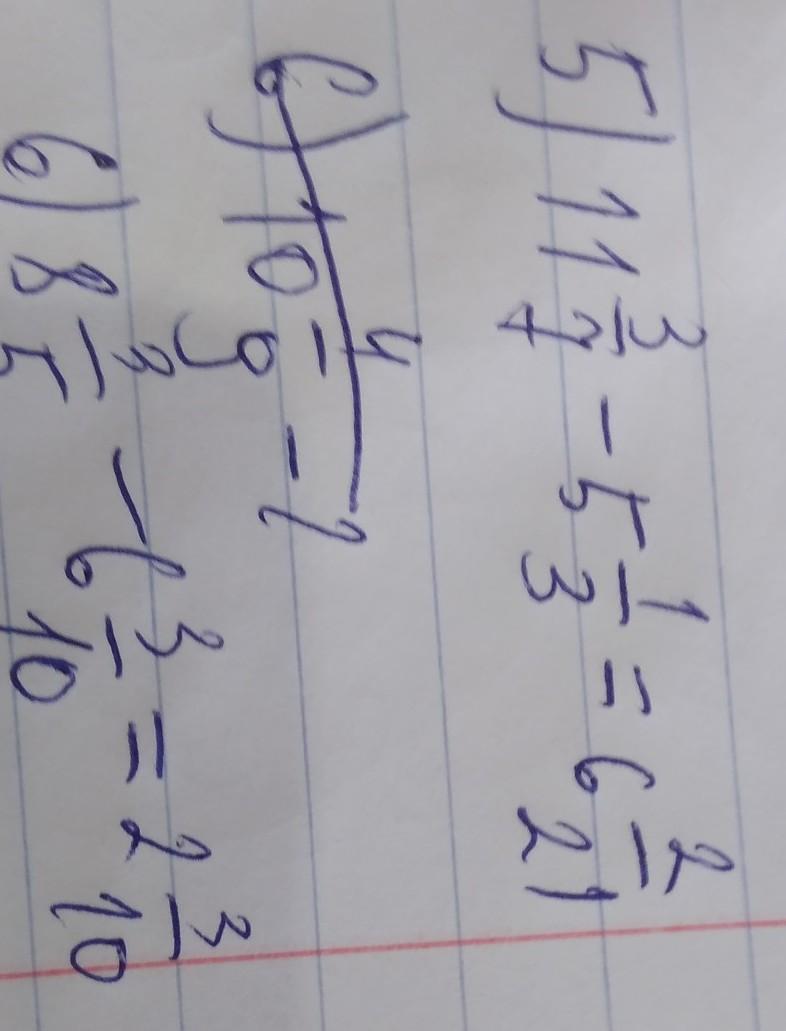 5) 11 3/7 - 5 1/3 = 6 2/21
6) 10 4/9 - 2
6) 8 3/5 - 6 3/10 = 2 3/10